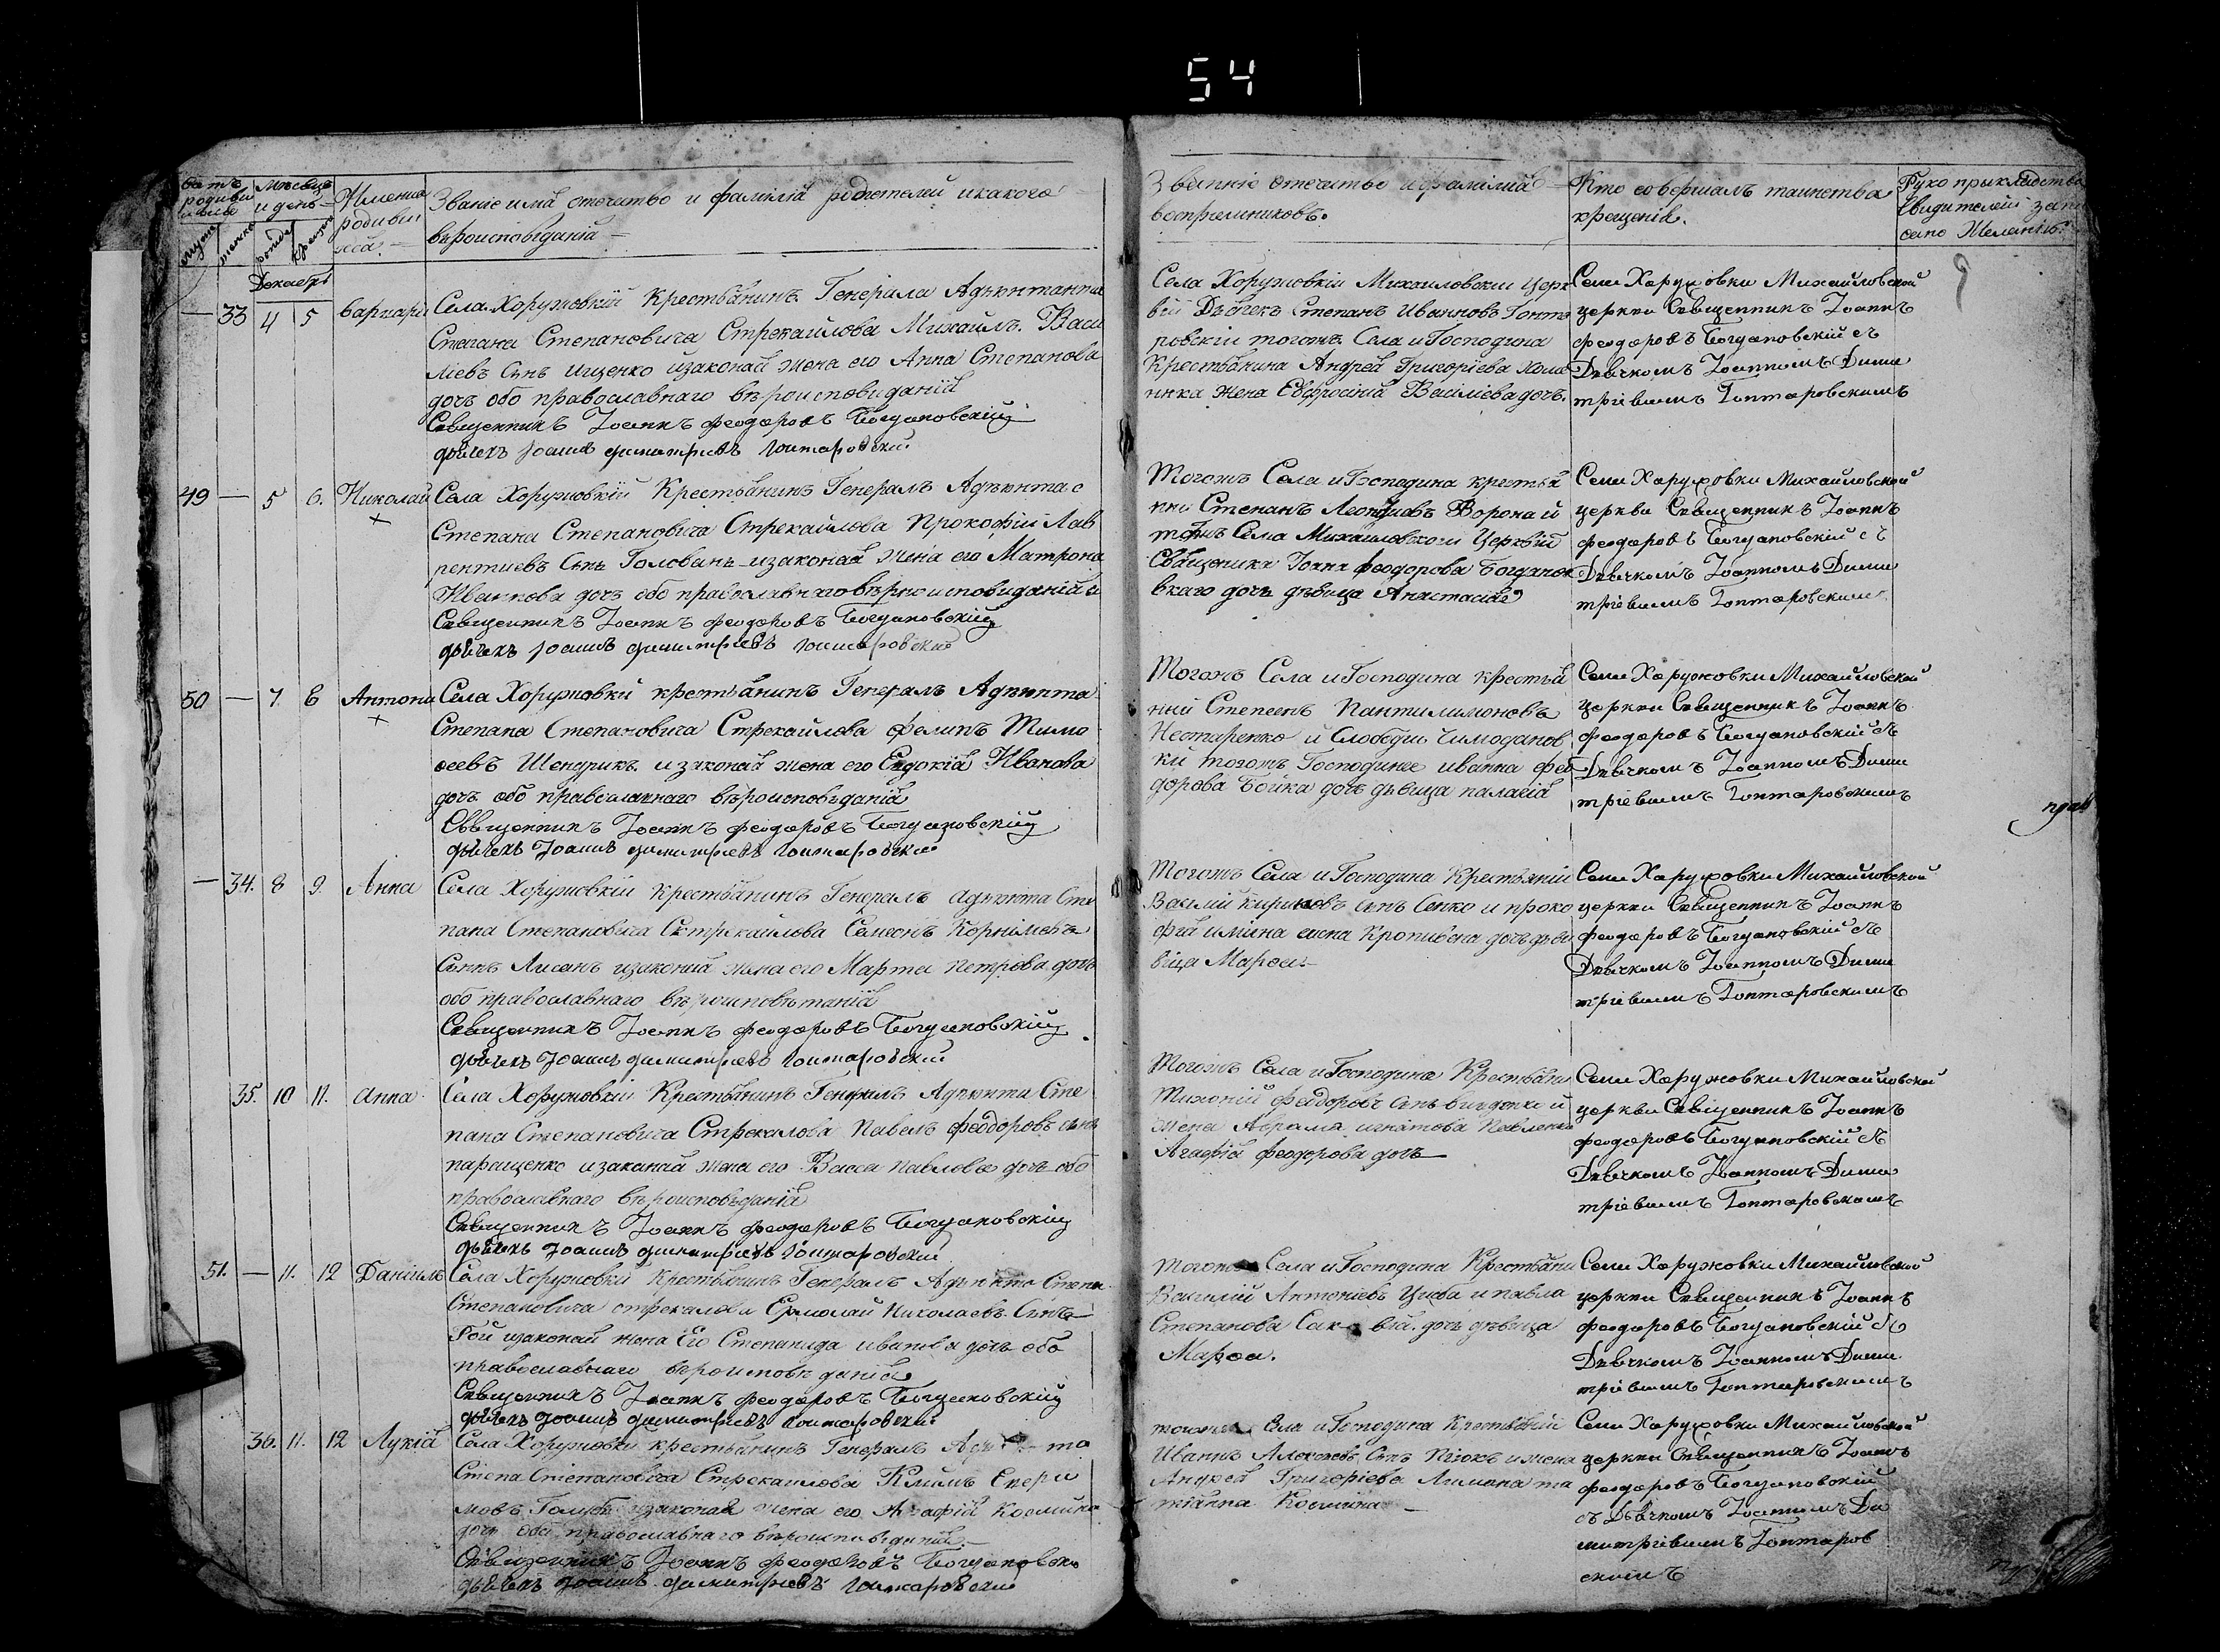 54
Мѣсяцъ
и день
Имена
родивш
Званіе имя отечество и фамилія родителей и какого
вѣроисповѣданія
Званніе отечество и фамилія
воспремниковъ.
Кто совершалъ таинство
крещенія.
Руко прыкладство
свидителей
Декабрь
33 4 5 Варвара
Села Хоружовкіи Крестьянинъ Генерала Адъютанта
Степана Степановича Стрекаилова Михаилъ Васи
ліевъ Сынъ Ищенко изаконая жена его Анна Степанова
дочъ обо православнаго вѣроисповиданіи
Священникъ Іоаннъ феодоровъ Богдановскій
дьячекъ Іоаннъ димитріевъ Гонтаровскій
Села Хоружовкіи Михаиловскіи церк
віи Дьячекъ Степанъ Ивановъ Гонта
ровскіи тогожъ Села и Господина
Крестьянина Андрея Григоріева
жена Евфросинія Василіева дочъ.
Села Харужовки Михайловской
церкви Священникъ Іоаннъ
феодоровъ Богдановскій съ
Дьячкомъ Іоанномъ Дими
тріевымъ Гонтаровскимъ
49 — 5 6. Николай
Села Хоружовкіи Крестьянинъ Генералъ Адъюнта
Степана Степановича Стрекаилова Прокофіи Лав
рентиевъ Сынъ Голованъ изаконая жена его Матрона
Иванова дочъ обо православнаго вѣроисповиданія
Священникъ Іоаннъ феодоровъ Богдановскій
дьячекъ Іоаннъ димитріевъ Гонтаровскій
Тогожъ Села и Господина крестья
нин Степанъ Ворона и
тогожъ Села Михаиловскои Церквіи
Священика Іоана феодорова Богданов
скаго дочъ дѣвица Анастасія
Села Харужовки Михайловской
церкви Священникъ Іоаннъ
феодоровъ Богдановскій съ
Дьячкомъ Іоанномъ Дими
тріевымъ Гонтаровскимъ
50 — 7 8 Антони
Села Хоружовки крестьянинъ Генералъ Адъюнта
Степана Степановича Стрекаилова Филипъ Тимо
феевъ Шендрикъ и законая жена его Евдокія Иванова
дочъ обо православнаго вѣроисповѣданія
Священникъ Іоаннъ феодоровъ Богдановскій
дьячекъ Іоаннъ димитріевъ Гонтаровскій
Тогожъ Села и Господина крестья
ниі Степанъ Пантилимоновъ
Нестеренко и Слободы Чимоданов
ки тогожъ Господина ивана фео
дорова Бойка дочъ дѣвица палагія
Села Харужовки Михайловской
церкви Священникъ Іоаннъ
феодоровъ Богдановскій съ
Дьячкомъ Іоанномъ Дими
тріевымъ Гонтаровскимъ
— 34. 8 9. Анна
Села Хоружовкіи крестьянинъ Генералъ адъюнта Сте
пана Степановича Стрекаилова Семіонъ Корніліевъ
Сынъ Лисанъ изаконая жена его Марта Петрова дочъ
обо православнаго вѣроисповѣтанія
Священникъ Іоаннъ феодоровъ Богдановскій
дьячекъ Іоаннъ димитріевъ Гонтаровскій
Тогожъ Села и Господина Крестьяніи
Василіи Кириловъ сынъ Сенко и проко
фія Кропивена дочъ дѣ
вица Марфа
Села Харужовки Михайловской
церкви Священникъ Іоаннъ
феодоровъ Богдановскій съ
Дьячкомъ Іоанномъ Дими
тріевымъ Гонтаровскимъ
35. 10 11. Анна
Села Хоружовкіи Крестьянинъ Генералъ Адъюнта Сте
пана Степановича Стрекалова Павелъ феодоровъ сынъ
паращенко изаканая жена его Васса павлова дочъ обо
православнаго вѣроисповѣданія
Священникъ Іоаннъ феодоровъ Богдановскій
дьячекъ Іоаннъ димитріевъ Гонтаровскій
Тогожъ Села и Господина Крестьяни
феодоровъ сынъ и
жена Аврама игнатова Павленка
Агафія феодорова дочъ
Села Харужовки Михайловской
церкви Священникъ Іоаннъ
феодоровъ Богдановскій съ
Дьячкомъ Іоанномъ Дими
тріевымъ Гонтаровскимъ
51. — 11. 12 Даніилъ
Села Хоружовкіи Крестьянинъ Генералъ Адъюнта Степа
Степановича стрекалова Ермолай Николаевъ Сынъ
Гои изаконая жена Его Степанида иванова дочъ обо
православнаго вѣроисповѣданія
Священникъ Іоаннъ феодоровъ Богдановскій
дьячекъ Іоаннъ димитріевъ Гонтаровскій
Тогожъ Села и Господина Крестьяни
Василій Антоніевъ Цыба и павла
Степанова дочъ дѣвица
Марфа.
Села Харужовки Михайловской
церкви Священникъ Іоаннъ
феодоровъ Богдановскій съ
Дьячкомъ Іоанномъ Дими
тріевымъ Гонтаровскимъ
36. 11. 12 Лукія
Села Хоружовки крестьянинъ Генералъ
Степа Степановича Стрекаилова Климъ
мовъ Голубъ изаконая жена его Агафія Космина
дочъ обо православнаго вѣроисповѣданія
Священникъ Іоаннъ феодоровъ Богдановскі
дьячекъ Іоаннъ димитріевъ Гонтаровскій
тогожъ Села и Господина Крестьяніи
Иванъ Алексѣевъ Сынъ и жена
Андрея Григоріева та
тіанна Космина
Села Харужовки Михайловской
церкви Священникъ Іоаннъ
феодоровъ Богдановскій
съ Дьячкомъ Іоанномъ Ди
митріевымъ Гонтаров
скимъ